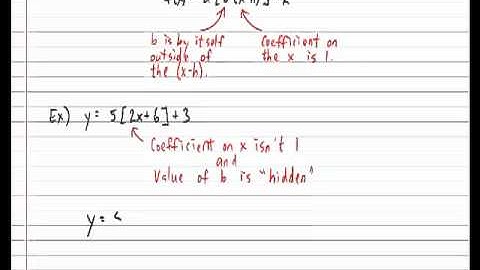 b is by itself
outside of
the (x-h).
Coefficient on
the x is 1.
Ex) y = 5[2x+6]+3
Coefficient on x isn't 1
and
Value of b is "hidden"
y =